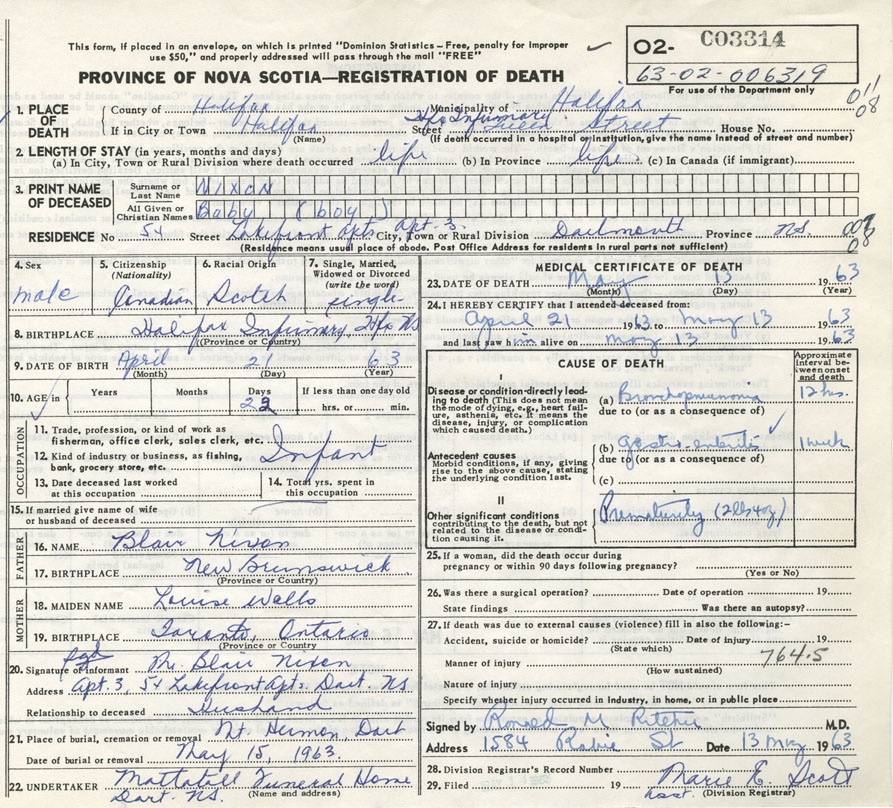 This form, if placed in an envelope, on which is printed "Dominion Statistics - Free, penalty for improper
use $50," and properly addressed will pass through the mail "FREE"
PROVINCE OF NOVA SCOTIA—REGISTRATION OF DEATH
O2- C03314
63-02-006319
For use of the Department only
011
08
1. PLACE OF DEATH
County of Halifax Municipality of Halifax
If in City or Town Halifax Street Hfx Infirmary Queen Street House No.
(Name) (If death occurred in a hospital or institution, give the name instead of street and number)
2. LENGTH OF STAY (in years, months and days)
(a) In City, Town or Rural Division where death occurred life (b) In Province life (c) In Canada (if immigrant)
3. PRINT NAME OF DECEASED
Surname or Last Name Nixon
All Given or Christian Names Baby (boy)
RESIDENCE No 54 Street Lakefront Apts Apt. 3. City, Town or Rural Division Dartmouth Province N.S.
08
(Residence means usual place of abode. Post Office Address for residents in rural parts not sufficient)
4. Sex male
5. Citizenship (Nationality) Canadian
6. Racial Origin Scotch
7. Single, Married, Widowed or Divorced (write the word) single
8. BIRTHPLACE Halifax Infirmary, Hfx NS
(Province or Country)
9. DATE OF BIRTH April 21 63
(Month) (Day) (Year)
10. AGE in Years Months Days 22 If less than one day old hrs. or min.
OCCUPATION
11. Trade, profession, or kind of work as fisherman, office clerk, sales clerk, etc.
12. Kind of industry or business, as fishing, bank, grocery store, etc. Infant
13. Date deceased last worked at this occupation
14. Total yrs. spent in this occupation
15. If married give name of wife or husband of deceased
FATHER
16. NAME Blair Nixon
17. BIRTHPLACE New Brunswick
(Province or Country)
MOTHER
18. MAIDEN NAME Louise Walls
19. BIRTHPLACE Toronto, Ontario
(Province or Country)
20. Signature of Informant sgd Mr. Blair Nixon
Address Apt. 3, 54 Lakefront Apts. Dart. NS
Relationship to deceased Husband
21. Place of burial, cremation or removal Mt. Hermon, Dart
Date of burial or removal May 15, 1963.
22. UNDERTAKER Mattatall Funeral Home
Dart. NS. (Name and address)
MEDICAL CERTIFICATE OF DEATH
23. DATE OF DEATH May 13 1963
(Month) (Day) (Year)
24. I HEREBY CERTIFY that I attended deceased from:
April 21 1963 to May 13 1963
and last saw him alive on May 13 1963
CAUSE OF DEATH
Approximate interval between onset and death
I
Disease or condition directly leading to death (This does not mean the mode of dying, e.g., heart failure, asthenia, etc. It means the disease, injury, or complication which caused death)
(a) Bronchopneumonia 12 hrs.
due to (or as a consequence of)
Antecedent causes
Morbid conditions, if any, giving rise to the above cause, stating the underlying condition last.
(b) gastro-enteritis 1 week
due to (or as a consequence of)
(c)
II
Other significant conditions contributing to the death, but not related to the disease or condition causing it.
Prematurity (2lbs4oz)
25. If a woman, did the death occur during pregnancy or within 90 days following pregnancy?
(Yes or No)
26. Was there a surgical operation? Date of operation 19
State findings Was there an autopsy?
27. If death was due to external causes (violence) fill in also the following:-
Accident, suicide or homicide? Date of injury 19
(State which)
Manner of injury 764.5
(How sustained)
Nature of injury
Specify whether injury occurred in industry, in home, or in public place
Signed by Ronald M Ritchie M.D.
Address 1584 Robie St Date 13 May 1963
28. Division Registrar's Record Number
29. Filed 19 Marie E. Scott
asst. (Division Registrar)